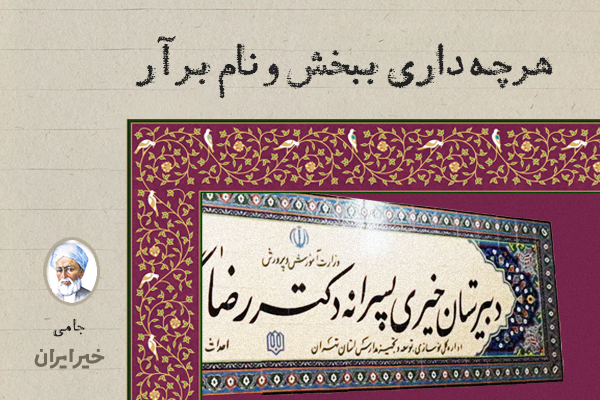 هرچه داری ببخش و نام برآر
وزارت آموزش و پرورش
دبیرستان خیری پسرانه دکتر رضا
اداره کل نوسازی، توسعه و تجهیز مدارس استان تهران
احداث
جامی
خیر ایران